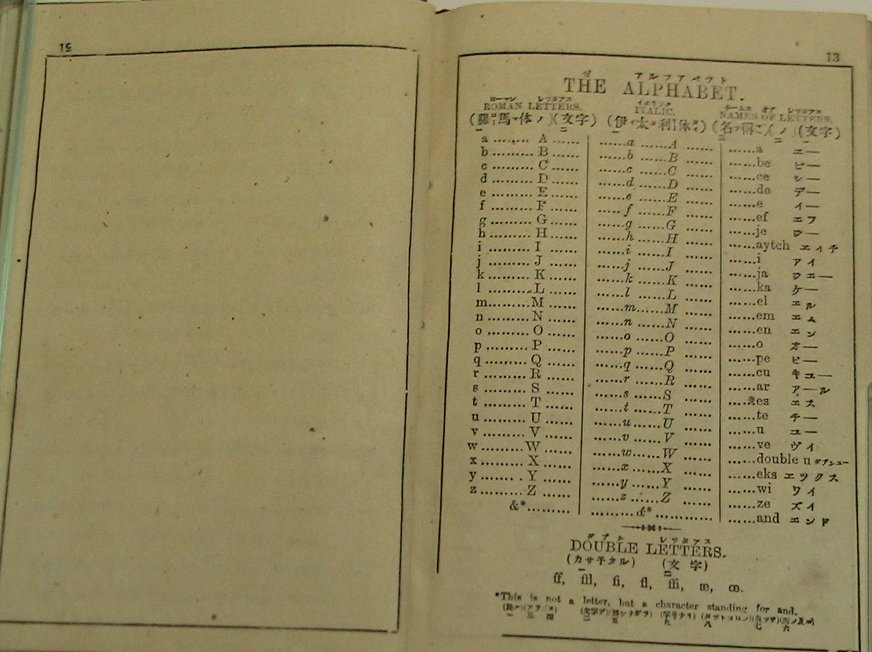 15
13
ゼ アルファベット
THE ALPHABET.
ローマン レッタアス
ROMAN LETTERS.
(羅馬体ノ)(文字)
イタリック
ITALIC.
(伊太利体)
ネームス オブ レッタアス
NAMES OF LETTERS.
(名稱)(ノ)(文字)
a ......... A ...... ......a ......A ...... ......a エー
b ......... B ...... ......b ......B ...... ......be ビー
c ......... C ...... ......c ......C ...... ......ce シー
d ......... D ...... ......d ......D ...... ......de デー
e ......... E ...... ......e ......E ...... ......e イー
f ......... F ...... ......f ......F ...... ......ef エフ
g ......... G ...... ......g ......G ...... ......je
h ......... H ...... ......h ......H ...... ......aytch エイチ
i ......... I ...... ......i ......I ...... ......i アイ
j ......... J ...... ......j ......J ...... ......ja
k ......... K ...... ......k ......K ...... ......ka ケー
l ......... L ...... ......l ......L ...... ......el エル
m ......... M ...... ......m ......M ...... ......em エム
n ......... N ...... ......n ......N ...... ......en エン
o ......... O ...... ......o ......O ...... ......o オー
p ......... P ...... ......p ......P ...... ......pe ピー
q ......... Q ...... ......q ......Q ...... ......cu キュー
r ......... R ...... ......r ......R ...... ......ar アール
s ......... S ...... ......s ......S ...... ......es エス
t ......... T ...... ......t ......T ...... ......te チー
u ......... U ...... ......u ......U ...... ......u ユー
v ......... V ...... ......v ......V ...... ......ve ヴイ
w ......... W ...... ......w ......W ...... ......double u
x ......... X ...... ......x ......X ...... ......eks エックス
y ......... Y ...... ......y ......Y ...... ......wi ワイ
z ......... Z ...... ......z ......Z ...... ......ze ズイ
&*......... .........&*............ ......and エンド
ダブル レッタアス
DOUBLE LETTERS.
(カサ子タル) (文字)
ff, ffl, fi, fl, ffi, æ, œ.
*This is not a letter, but a character standing for and.